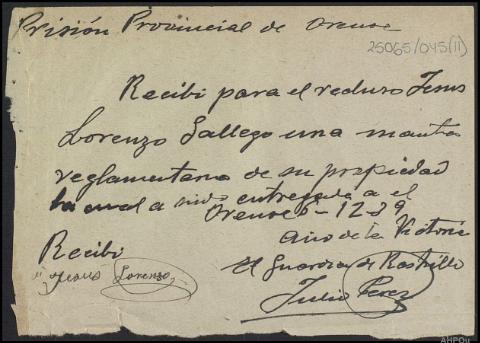 Prisión Provincial de Orense
25065/045(11)
Recibi para el recluso Jesus
Lorenzo Gallego una manta
reglamentaria de su propiedad
la cual a sido entregada a el
Orense 6-12-39
Año de la Victoria
Recibi
El Guardia de Rastrillo
Jesus Lorenzo
Julio Perez
AHPOu